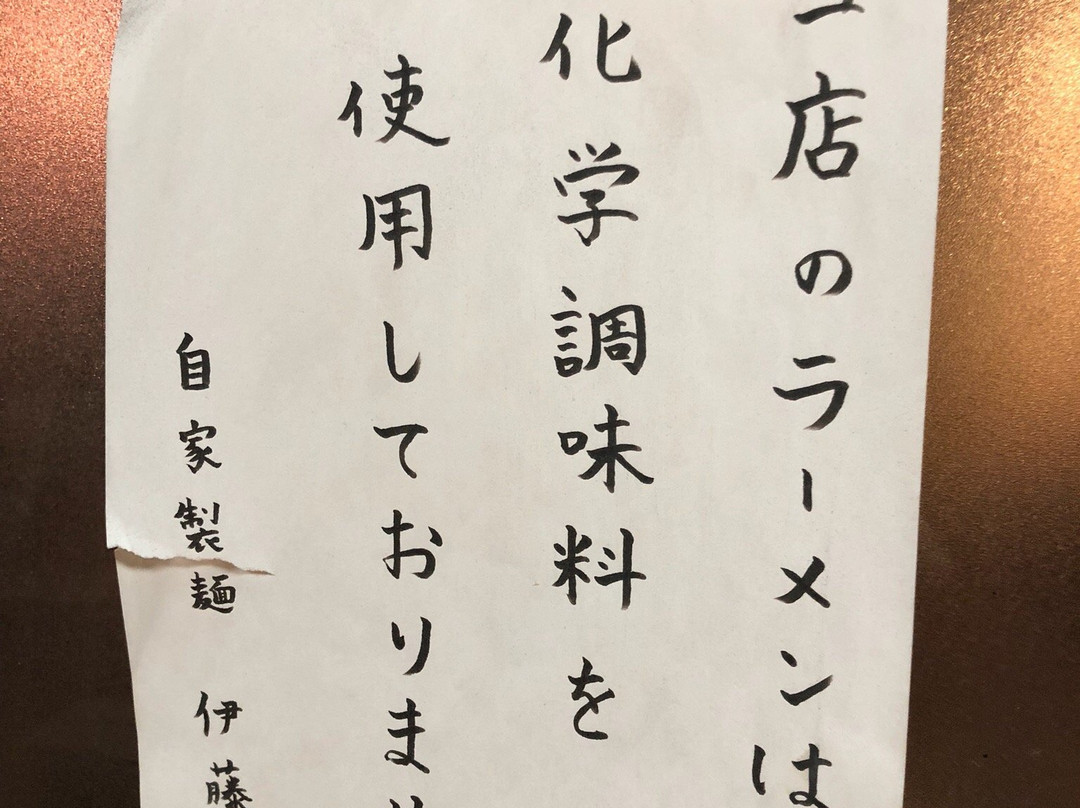 店のラーメンは
化学調味料を
使用しておりま
自家製麺 伊藤